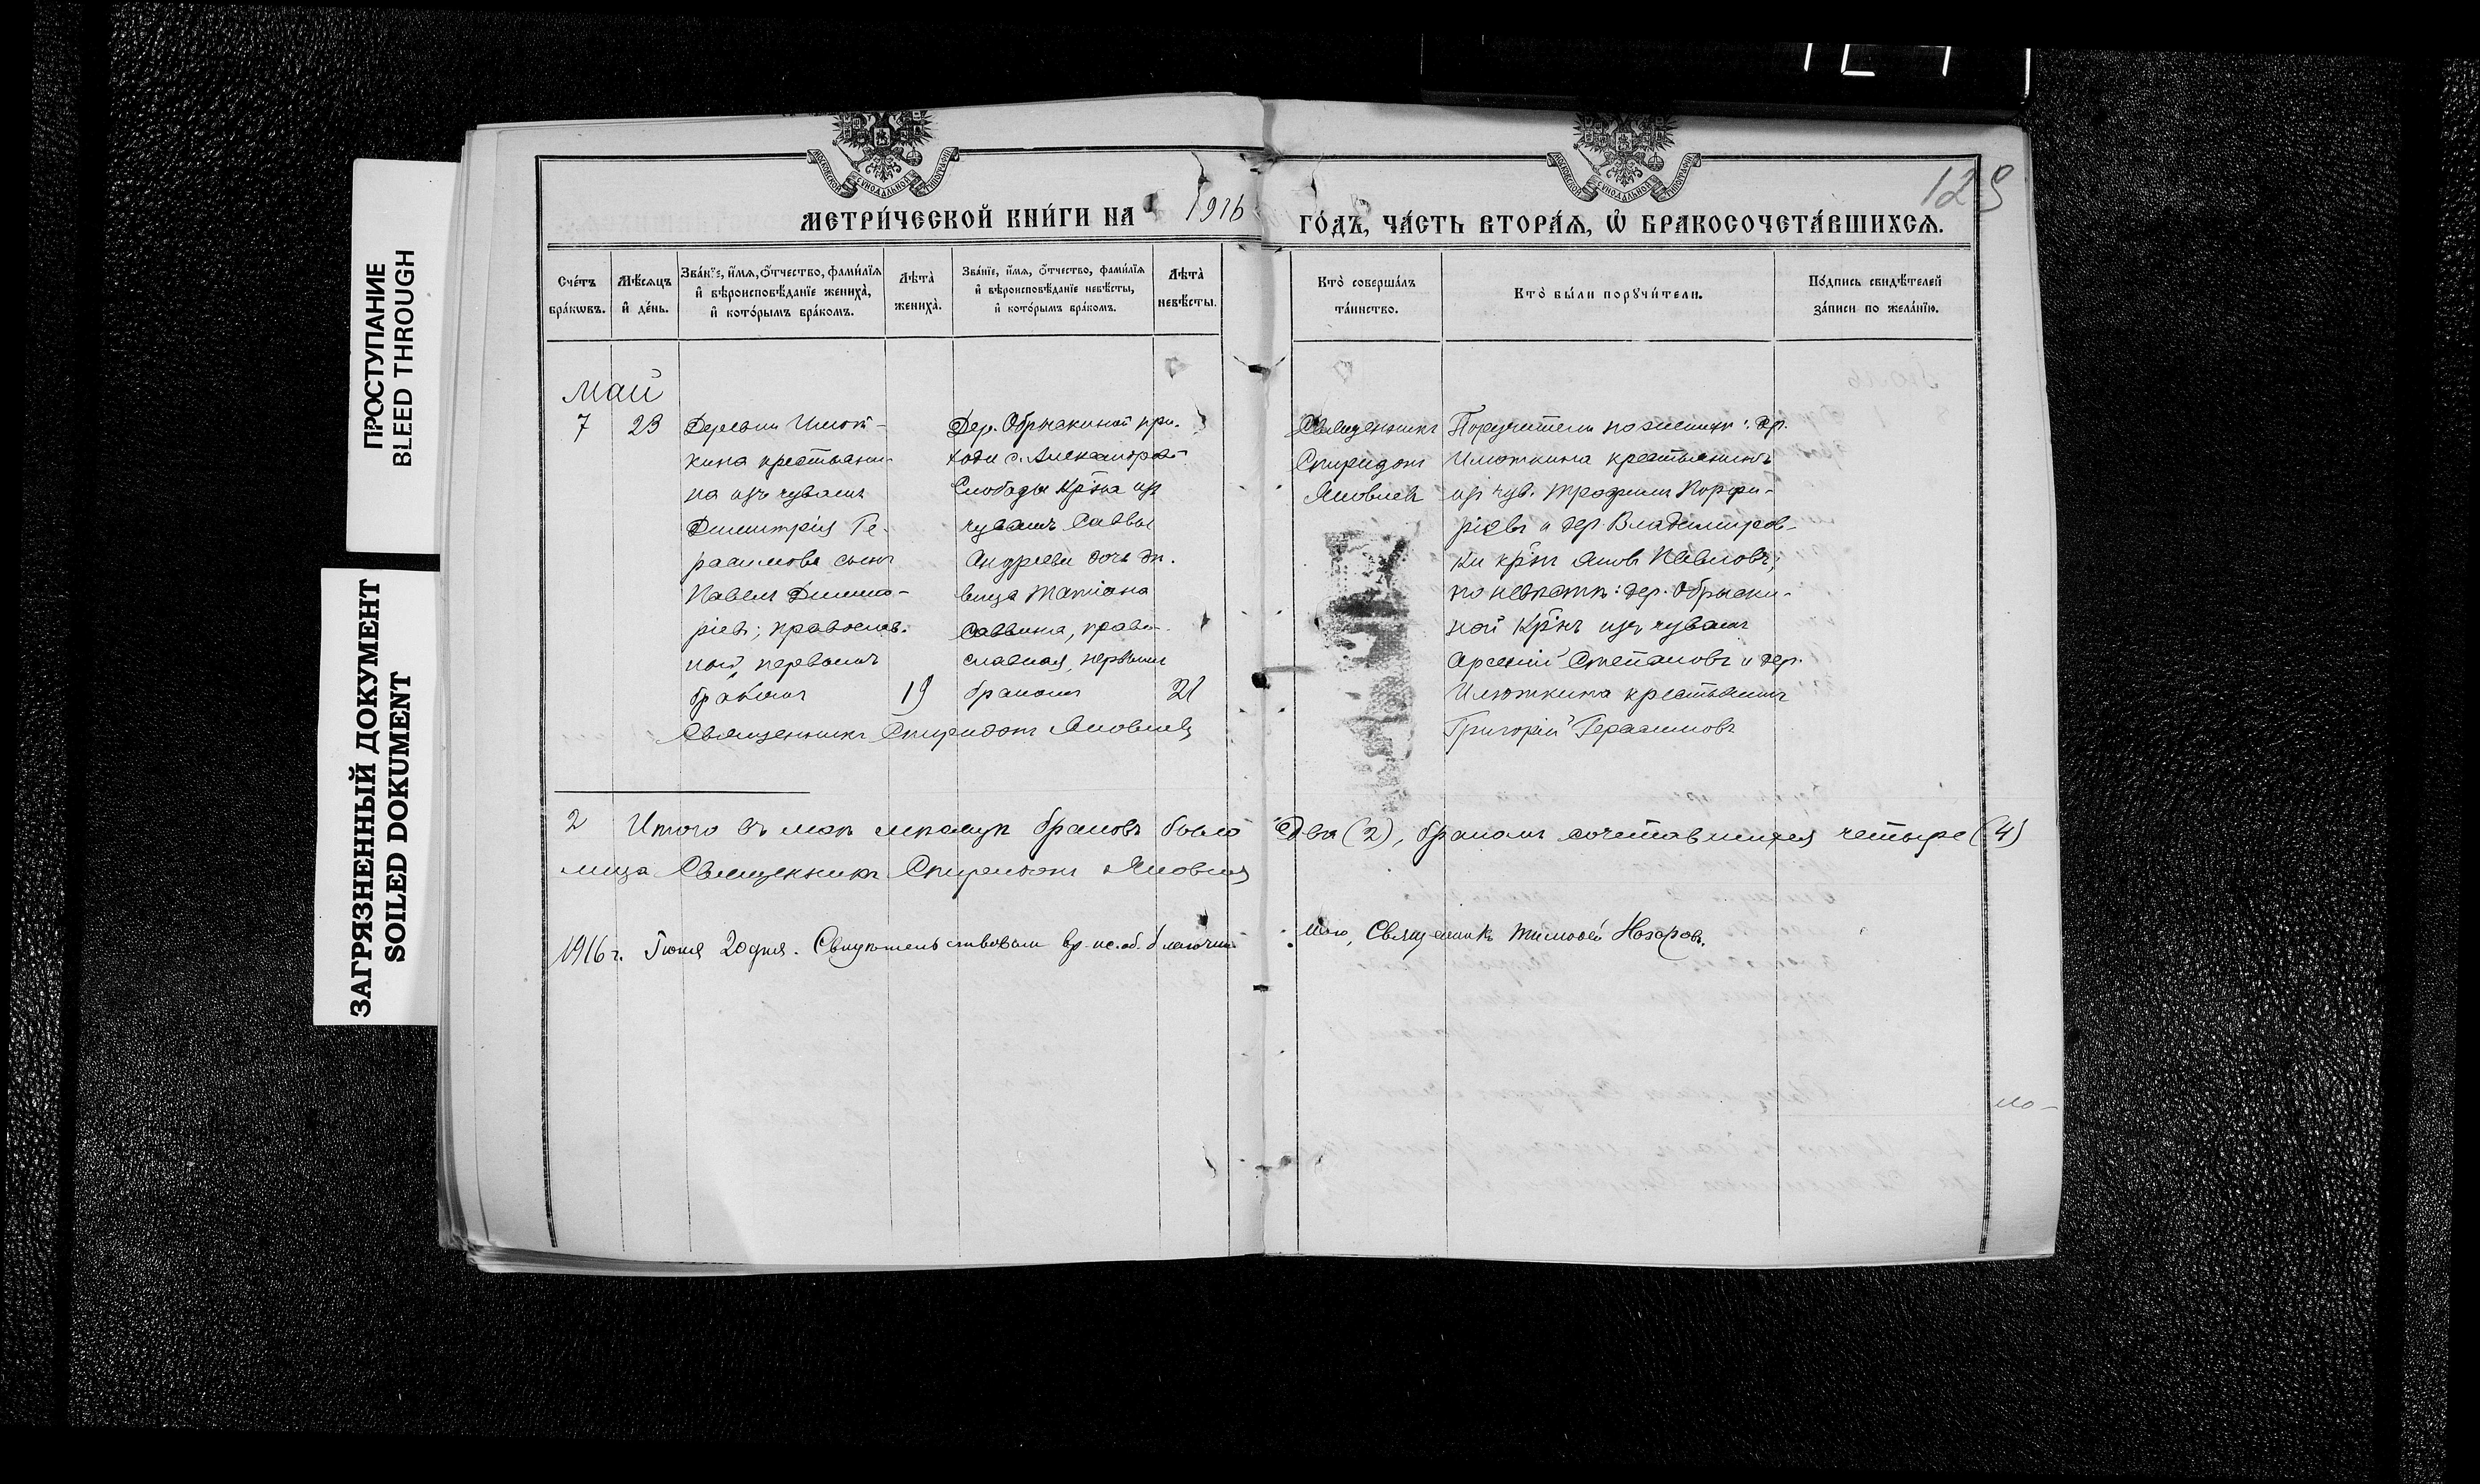 ПРОСТУПАНИЕ
BLEED THROUGH
ЗАГРЯЗНЕННЫЙ ДОКУМЕНТ
SOILED DOKUMENT
МОСКОВСКОЙ СУНОДАЛЬНОЙ ТИПОГРАФІИ
МОСКОВСКОЙ СУНОДАЛЬНОЙ ТИПОГРАФІИ
129
МЕТРИ́ЧЕСКОЙ КНИ́ГИ НА 1916
ГО́ДЪ, ЧА́СТЬ ВТОРА́Ѧ, Ѡ҆ БРАКОСОЧЕТА́ВШИХСѦ.
Сче́тъ бра́кѡвъ.
Мѣ́сѧцъ и҆ де́нь.
Зва́нїе, и҆́мѧ, ѻ҆́тчество, фами́лїѧ
и҆ вѣроисповѣ́данїе жениха̀,
и҆ кото́рымъ бра́комъ.
Лѣта̀ жениха̀.
Зва́нїе, и҆́мѧ, ѻ҆́тчество, фами́лїѧ
и҆ вѣроисповѣ́данїе невѣ́сты,
и҆ кото́рымъ бра́комъ.
Лѣта̀ невѣ́сты.
Кто̀ соверша́лъ
та́инство.
Кто̀ бы́ли порꙋчи́тели.
По́дпись свидѣ́телей
за́писи по жела́нїю.
Май
7
23
Деревни Илют-
кина крестьяни-
на изъ чувашъ
Димитрія Ге-
расимова сынъ
Павелъ Димит-
ріевъ; православ-
ный, первымъ
бракомъ
19
Дер. Обрыскиной при-
хода с. Александров.
Слободы Кр-на изъ
чувашъ Саввы
Андреева дочь дѣ-
вица Татіана
Саввина, право-
славная, первымъ
бракомъ
21
Священникъ Спиридонъ Яковлевъ
Священникъ
Спиридонъ
Яковлевъ
Поручители по женихѣ: др.
Илюткина крестьянинъ
изъ чув. Трофимъ Порфи-
ріевъ и дер. Владимиров-
ки кр-нъ Яковъ Павловъ;
по невѣстѣ: дер. Обрыски-
ной кр-нъ изъ чувашъ
Арсеній Степановъ и дер.
Илюткина крестьянинъ
Григорій Герасимовъ
2 Итого въ маѣ мѣсяцѣ браковъ было два (2), бракомъ сочетавшихся четыре (4)
лица Священникъ Спиридонъ Яковлевъ
1916 г. Іюня 20 дня. Свидѣтельствовалъ вр. ис. об. благочин-
наго, Священникъ Тимоѳей Назаровъ.